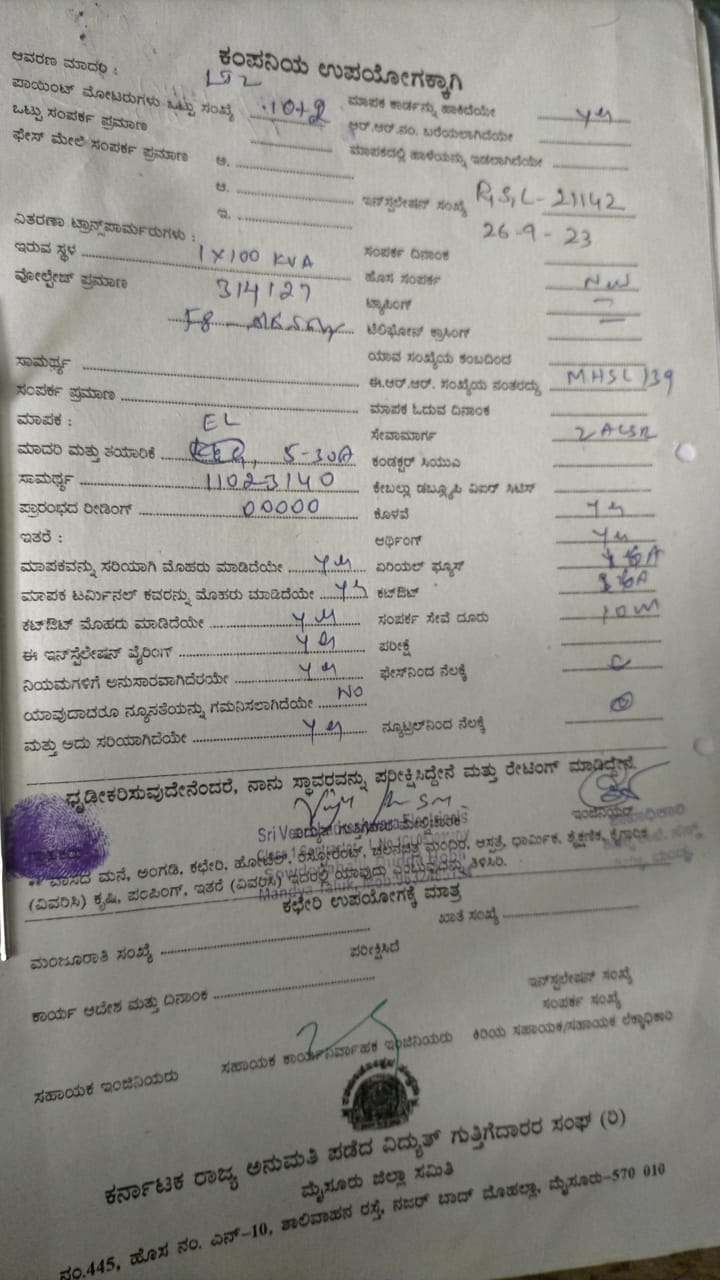 ಕಂಪನಿಯ ಉಪಯೋಗಕ್ಕಾಗಿ
ಆವರಣ ಮಾದರಿ :
ಪಾಯಿಂಟ್ ಮೋಟರುಗಳು ಒಟ್ಟು ಸಂಖ್ಯೆ 10+2 ಮಾಪಕ ಕಾರ್ಡನ್ನು ಹಾಕಿದೆಯೇ yes
ಒಟ್ಟು ಸಂಪರ್ಕ ಪ್ರಮಾಣ ಆರ್.ಆರ್.ನಂ. ಬರೆಯಲಾಗಿದೆಯೇ
ಫೇಸ್ ಮೇಲೆ ಸಂಪರ್ಕ ಪ್ರಮಾಣ ಅ. ಮಾಪಕದಲ್ಲಿ ಹಾಳೆಯನ್ನು ಇಡಲಾಗಿದೆಯೇ
ಆ. ಇನ್‌ಸ್ಟಲೇಷನ್ ಸಂಖ್ಯೆ R,S,L-21142
ಇ. 26-9-23
ವಿತರಣಾ ಟ್ರಾನ್ಸ್‌ಫಾರ್ಮರುಗಳು : ಸಂಪರ್ಕ ದಿನಾಂಕ
ಇರುವ ಸ್ಥಳ 1 X 100 KVA ಹೊಸ ಸಂಪರ್ಕ New
ವೋಲ್ಟೇಜ್ ಪ್ರಮಾಣ 314127 ಟ್ಯಾಪಿಂಗ್
F8 ಟೆಲಿಫೋನ್ ಕ್ರಾಸಿಂಗ್
ಯಾವ ಸಂಖ್ಯೆಯ ಕಂಬದಿಂದ
ಸಾಮರ್ಥ್ಯ ಈ.ಆರ್.ಆರ್. ಸಂಖ್ಯೆಯ ನಂತರದ್ದು MHSL 139
ಸಂಪರ್ಕ ಪ್ರಮಾಣ ಮಾಪಕ ಓದುವ ದಿನಾಂಕ
ಮಾಪಕ : EL ಸೇವಾಮಾರ್ಗ 2 ACSR
ಮಾದರಿ ಮತ್ತು ತಯಾರಿಕೆ 5-30A ಕಂಡಕ್ಟರ್ ಸಿಯುಎ
ಸಾಮರ್ಥ್ಯ 11023140 ಕೇಬಲ್ಲು ಡಬ್ಲ್ಯೂಪಿ ವಿಐರ್ ಸಿಟಿಸ್
ಪ್ರಾರಂಭದ ರೀಡಿಂಗ್ 00000 ಕೊಳವೆ yes
ಇತರೆ : ಆರ್ಥಿಂಗ್ yes
ಮಾಪಕವನ್ನು ಸರಿಯಾಗಿ ಮೊಹರು ಮಾಡಿದೆಯೇ yes ಏರಿಯಲ್ ಫ್ಯೂಸ್
ಮಾಪಕ ಟರ್ಮಿನಲ್ ಕವರನ್ನು ಮೊಹರು ಮಾಡಿದೆಯೇ yes ಕಟ್‌ಔಟ್
ಕಟ್‌ಔಟ್ ಮೊಹರು ಮಾಡಿದೆಯೇ yes ಸಂಪರ್ಕ ಸೇವೆ ದೂರು 10 m
ಈ ಇನ್‌ಸ್ಟೆಲೇಷನ್ ವೈರಿಂಗ್ yes ಪರೀಕ್ಷೆ
ನಿಯಮಗಳಿಗೆ ಅನುಸಾರವಾಗಿದೆರಯೇ yes ಫೇಸ್‌ನಿಂದ ನೆಲಕ್ಕೆ
ಯಾವುದಾದರೂ ನ್ಯೂನತೆಯನ್ನು ಗಮನಿಸಲಾಗಿದೆಯೇ NO
ಮತ್ತು ಅದು ಸರಿಯಾಗಿದೆಯೇ yes ನ್ಯೂಟ್ರಲ್‌ನಿಂದ ನೆಲಕ್ಕೆ
ಧೃಡೀಕರಿಸುವುದೇನೆಂದರೆ, ನಾನು ಸ್ಥಾವರವನ್ನು ಪರೀಕ್ಷಿಸಿದ್ದೇನೆ ಮತ್ತು ರೇಟಿಂಗ್ ಮಾಡಿದ್ದೇನೆ
ವಿದ್ಯುತ್ ಗುತ್ತಿಗೆದಾರ ಮೇಲ್ವಿಚಾರಕ ಇಂಜಿನಿಯರ್
** ವಾಸದ ಮನೆ, ಅಂಗಡಿ, ಕಛೇರಿ, ಹೋಟೆಲ್, ರೆಸ್ಟೋರೆಂಟ್, ಚಲನಚಿತ್ರ ಮಂದಿರ, ಆಸ್ಪತ್ರೆ, ಧಾರ್ಮಿಕ, ಶೈಕ್ಷಣಿಕ, ಕೈಗಾರಿಕ
(ವಿವರಿಸಿ) ಕೃಷಿ, ಪಂಪಿಂಗ್, ಇತರೆ (ವಿವರಿಸಿ) ಇದರಲ್ಲಿ ಯಾವುದು ಎಂಬುವುದನ್ನು ತಿಳಿಸಿರಿ.
ಕಛೇರಿ ಉಪಯೋಗಕ್ಕೆ ಮಾತ್ರ
ಮಂಜೂರಾತಿ ಸಂಖ್ಯೆ ಖಾತೆ ಸಂಖ್ಯೆ
ಪರೀಕ್ಷಿಸಿದೆ
ಕಾರ್ಯ ಆದೇಶ ಮತ್ತು ದಿನಾಂಕ ಇನ್‌ಸ್ಟಲೇಷನ್ ಸಂಖ್ಯೆ
ಸಂಪರ್ಕ ಸಂಖ್ಯೆ
ಸಹಾಯಕ ಇಂಜಿನಿಯರು ಸಹಾಯಕ ಕಾರ್ಯನಿರ್ವಾಹಕ ಇಂಜಿನಿಯರು ಕಿರಿಯ ಸಹಾಯಕ/ಸಹಾಯಕ ಲೆಕ್ಕಾಧಿಕಾರಿ
ಕರ್ನಾಟಕ ರಾಜ್ಯ ಅನುಮತಿ ಪಡೆದ ವಿದ್ಯುತ್ ಗುತ್ತಿಗೆದಾರರ ಸಂಘ (ರಿ)
ಮೈಸೂರು ಜಿಲ್ಲಾ ಸಮಿತಿ
ನಂ.445, ಹೊಸ ನಂ. ಎನ್-10, ಶಾಲಿವಾಹನ ರಸ್ತೆ, ನಜರ್ ಬಾದ್ ಮೊಹಲ್ಲಾ, ಮೈಸೂರು-570 010